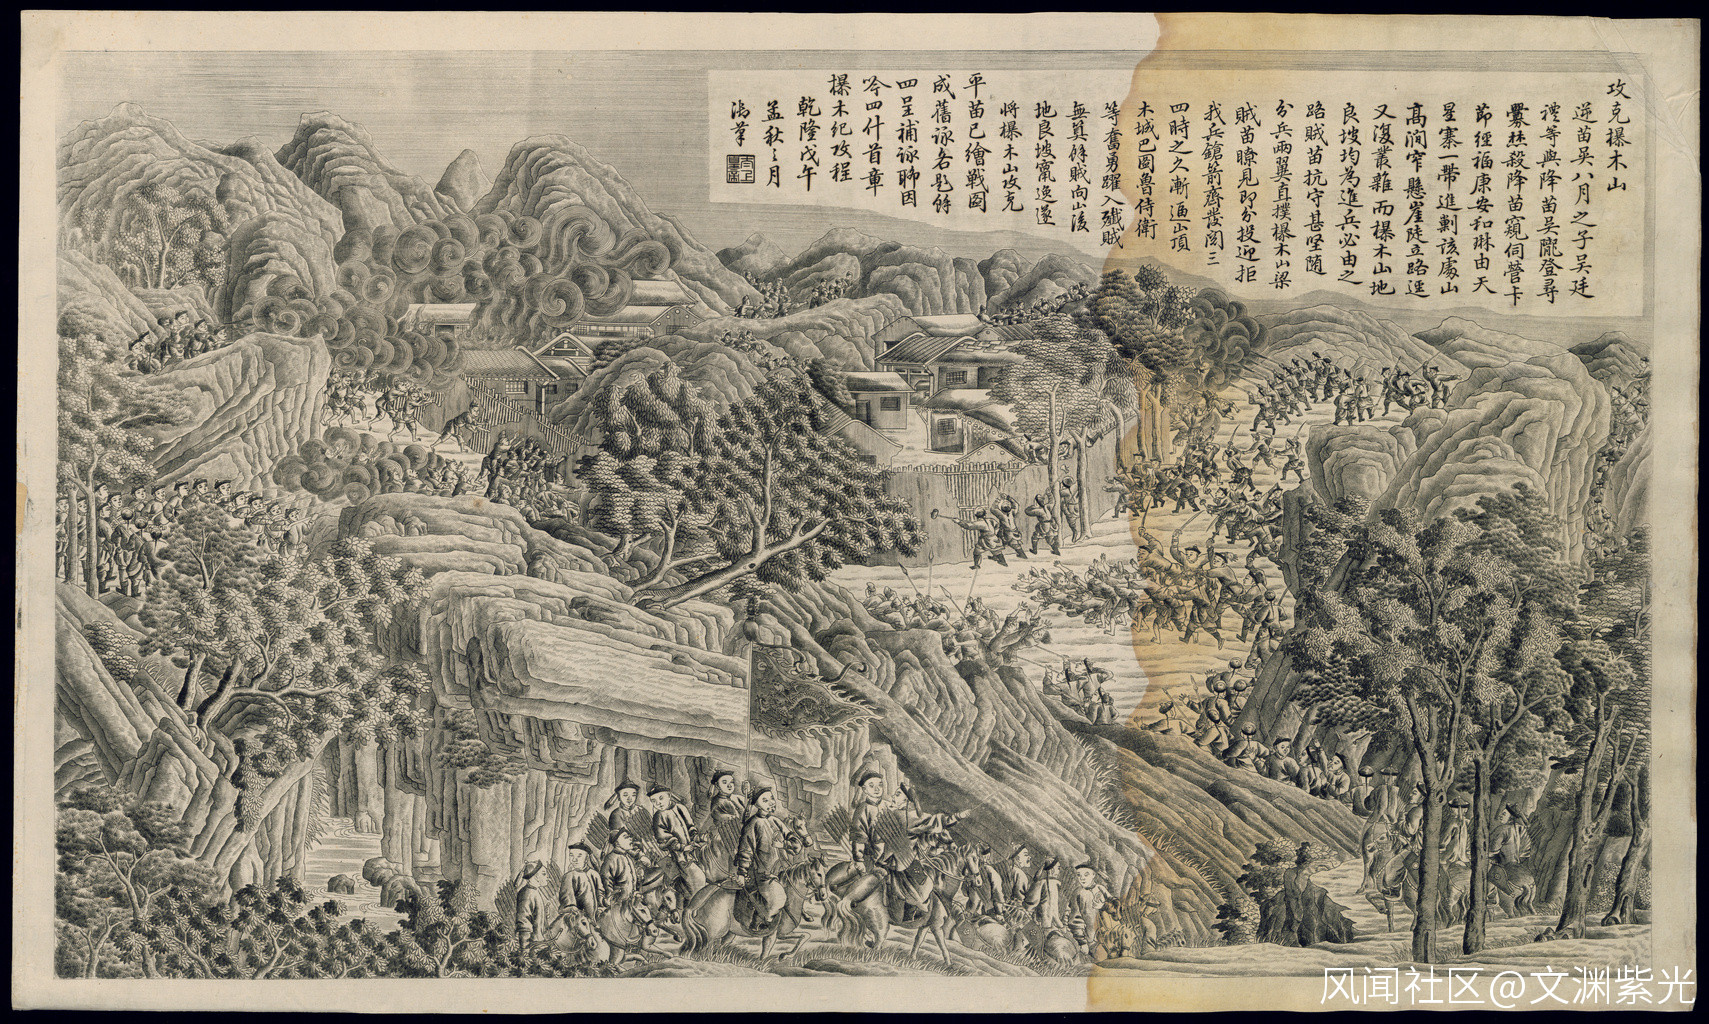 攻克櫐木山
逆苗吳八月之子吳廷
禮等與降苗吳隴登尋
釁㷀殺降苗窺伺營卡
節經福康安和琳由天
星寨一帶進剿該處山
高澗窄懸崖陡立路逕
又復叢雜而櫐木山地
良坡均為進兵必由之
路賊苗抗守甚堅隨
分兵兩翼直撲櫐木山梁
賊苗瞭見即分投迎拒
我兵鎗箭齊發閱三
四時之久漸逼山頂
木城巴圖魯侍衛
等奮勇躍入殲賊
無算餘賊向山後
地良坡竄逸遂
將櫐木山攻克
平苗已繪戰圖
成舊詠各題餘
四呈補詠聊因
吟四什首章
櫐木紀攻程
乾隆戊午
孟秋之月
御筆
風闻社区@文渊紫光